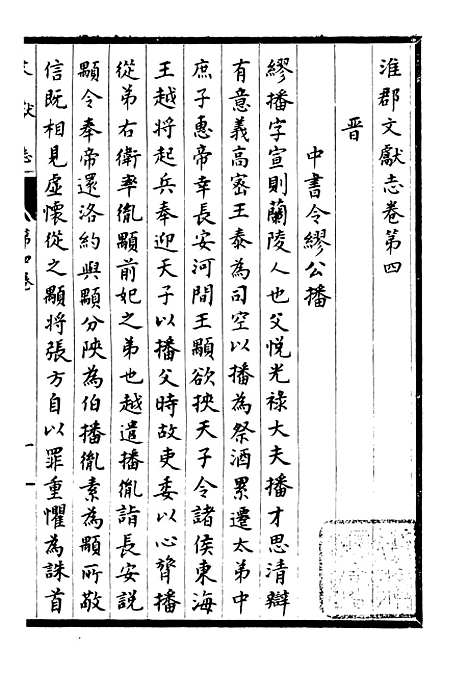 淮郡文獻志卷第四
晉
中書令繆公播
繆播字宣則蘭陵人也父悅光祿大夫播才思清辯
有意義高密王泰為司空以播為祭酒累遷太弟中
庶子惠帝幸長安河間王顒欲挾天子令諸侯東海
王越將起兵奉迎天子以播父時故吏委以心膂播
從弟右衛率胤顒前妃之弟也越遣播胤詣長安說
顒令奉帝還洛約與顒分陝為伯播胤素為顒所敬
信既相見虛懷從之顒將張方自以罪重懼為誅首
獻志
第四卷
一